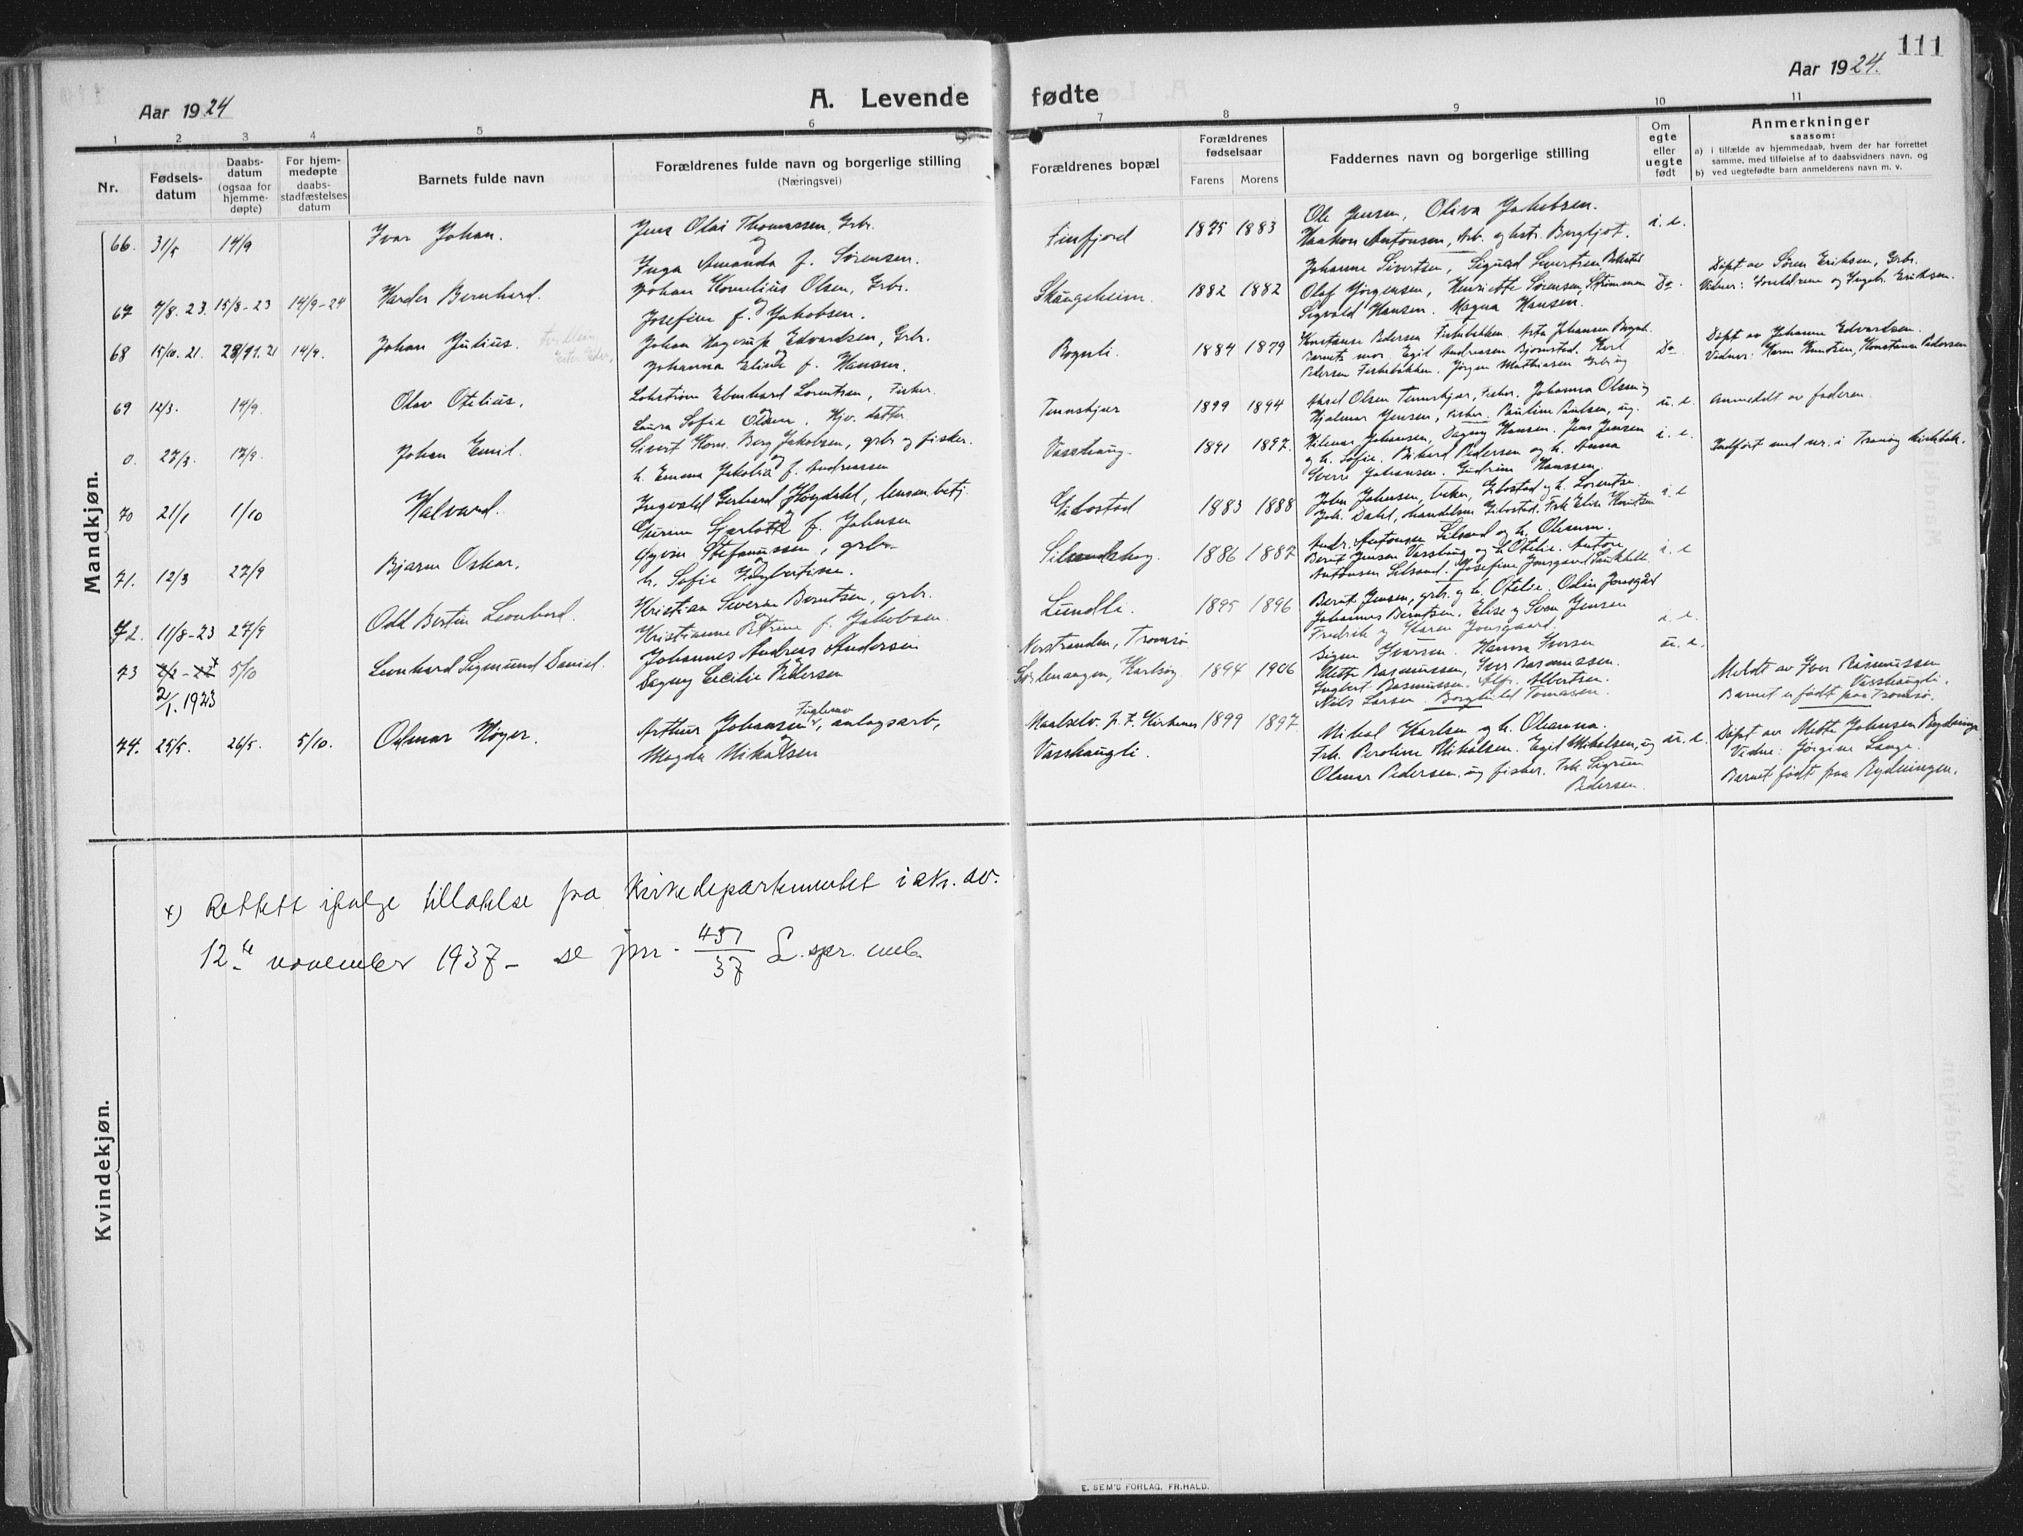 111
Aar 1924
A. Levende fødte
Aar 1924.
1 2 3 4 5 6 7 8 9 10 11
Nr.
Fødsels-
datum
Daabs-
datum
(ogsaa for
hjemme-
døpte)
For hjem-
medøpte
daabs-
stadfæstelses
datum
Barnets fulde navn
Forældrenes fulde navn og borgerlige stilling
(Næringsvei)
Forældrenes bopæl
Forældrenes
fødselsaar
Farens Morens
Faddernes navn og borgerlige stilling
Om
egte
eller
uegte
født
Anmerkninger
saasom:
a) i tilfælde av hjemmedaab, hvem der har forrettet
samme, med tilføielse af to daabsvidners navn, og
b) ved uegtefødte barn anmelderens navn m. v.
Mandkjøn.
66. 31/5 14/9 Ivar Johan.
Jens Olai Thomassen, Grbr.
og
Inga Amanda f. Sørensen.
Finfjord 1875 1883
Ole Jensen, Oliva Jakobsen.
Haakon Antonsen, Arb. og hstr. Bergljot.
i. e.
67 7/8. 23. 15/8-23 14/9-24 Harder Bernhard.
Johan Kornelius Olsen, Grbr.
og
Josefine f. Jakobsen.
Skognheim. 1882 1882
Johanne Sivertsen, Sigurd Sivertsen
Olaf Jörgensen, Henriette Sørensen, Strømmen
Sigvald Hansen. Magna Hansen.
Do.
Döpt av Sören Eriksen, Grbr.
Vidner: Foreldrene og Ingebr. Eriksen.
68 15/10. 21. 28/11. 21 14/9. Johan Julius.
Johan Hagerup Edvardsen, Grbr.
Johanna Eline f. Hansen.
Bogneli. 1884 1879
Konstanse Pedersen Finbakken. Asta Johansen
Barnets mor. Egil Andreassen Bjornstad. Karl
Pedersen Finbakken. Jörgen Mathiasen
Do
Döpt av Johanne Edvardsen.
Vidner: Karen Knudsen, Konstanse Pedersen
69 12/3. 14/9. Olav Otelius.
Edenhard Lorentsen, Fisker.
Laura Sofie Olsen. Hjv. datter
Tennskjær 1899 1894
Aksel Olsen Tennskjær, Fisker. Johanna Olsen
Hjalmar Jensen, Fisker. Pauline Paulsen, ug.
u. e.
Anmeldt av faderen.
0. 27/3. 17/9. Johan Emil.
Sivert Korn. Berg Jakobsen, grbr og fisker.
og
h. Emma Jakobia f. Andreassen
Vasshaug. 1891 1897.
Hilmar Johansen, Dagny Hansen. Jens Jensen
og h. Sofie. Rikard Pedersen og h. Anna
Sverre Johansen. Gudrun Hanssen.
i. e.
Indført med nr. i Tranøy kirkebok.
70 21/1 1/10 Halvard.
Ingvald Gerhard Høgdahl, lensm. betj.
Gurine Sjarlotte f. Johnsen
Gibostad 1883 1888
John Johansen, Gibostad og h. Lorentse.
Joh. Dahl, handelsm. Gibostad. Frk. Elise Knutsen
i. e
71. 12/3 27/9 Bjarne Oskar.
Stefanussen, grbr.
og
h. Sofie Ingbertine.
1886 1887
Andr. Antonsen Silsand og h. Oleanna.
Bernt Jensen Vasshaug og h. Otelie. Antore
Antonsen Silsand. Josefine Jonsgaard
i. e
72. 11/8-23 27/9 Odd Bertin Leonhard.
Kristian Severin Berntsen, grbr.
og
Kristianne Petrine f. Jakobsen
Lundli. 1895 1896
Bernt Jensen, grbr. og h. Otelie. Odin Jonsgård
Johannes Berntsen. Elise og Sven Jensen
Fredrik og Karen Jonsgaard.
i. e.
73 2/1. 1923 5/10 Leonhard Sigmund Daniel.
Johannes Andreas Andersen
Dagny Cecilie Pedersen
Norstranden, Tromsø
Karlsøy 1894 1906
Signe Iversen. Hanna Iversen
Mette Rasmussen, Iver Rasmussen.
Ingbert Rasmussen. Alf. Albertsen.
Nils Larsen. Borghild Tomasen.
u. e.
Meldt av Iver Rasmussen
Vasshaugli.
Barnet er født paa Tromsø.
74. 25/5. 26/5. 5/10. Odmar Høyer.
Fuglenav
Arthur Johansen, anlægsarb,
Magda Mikalsen
Maalselv. p. t. Kirkenes 1899 1897
Vasshaugli.
Mikal Karlsen og h. Oleanna.
Frk. Peroline Mikalsen. Egil Mikalsen, ug
Olmar Pedersen. ug fisker. Frk Sigrun
Pedersen.
u. e.
Döpt av Mette Johnsen Rydninge
Vidne: Jørgine Lange.
Barnet født paa Rydningen.
Kvindekjøn.
x) Rettett ifølge tillatelse fra Kirkedepartementet i skr. av.
12te november 1937 - se jnr. 451/37 L. spr. emb.
E. SEM'S FORLAG, FR.HALD.